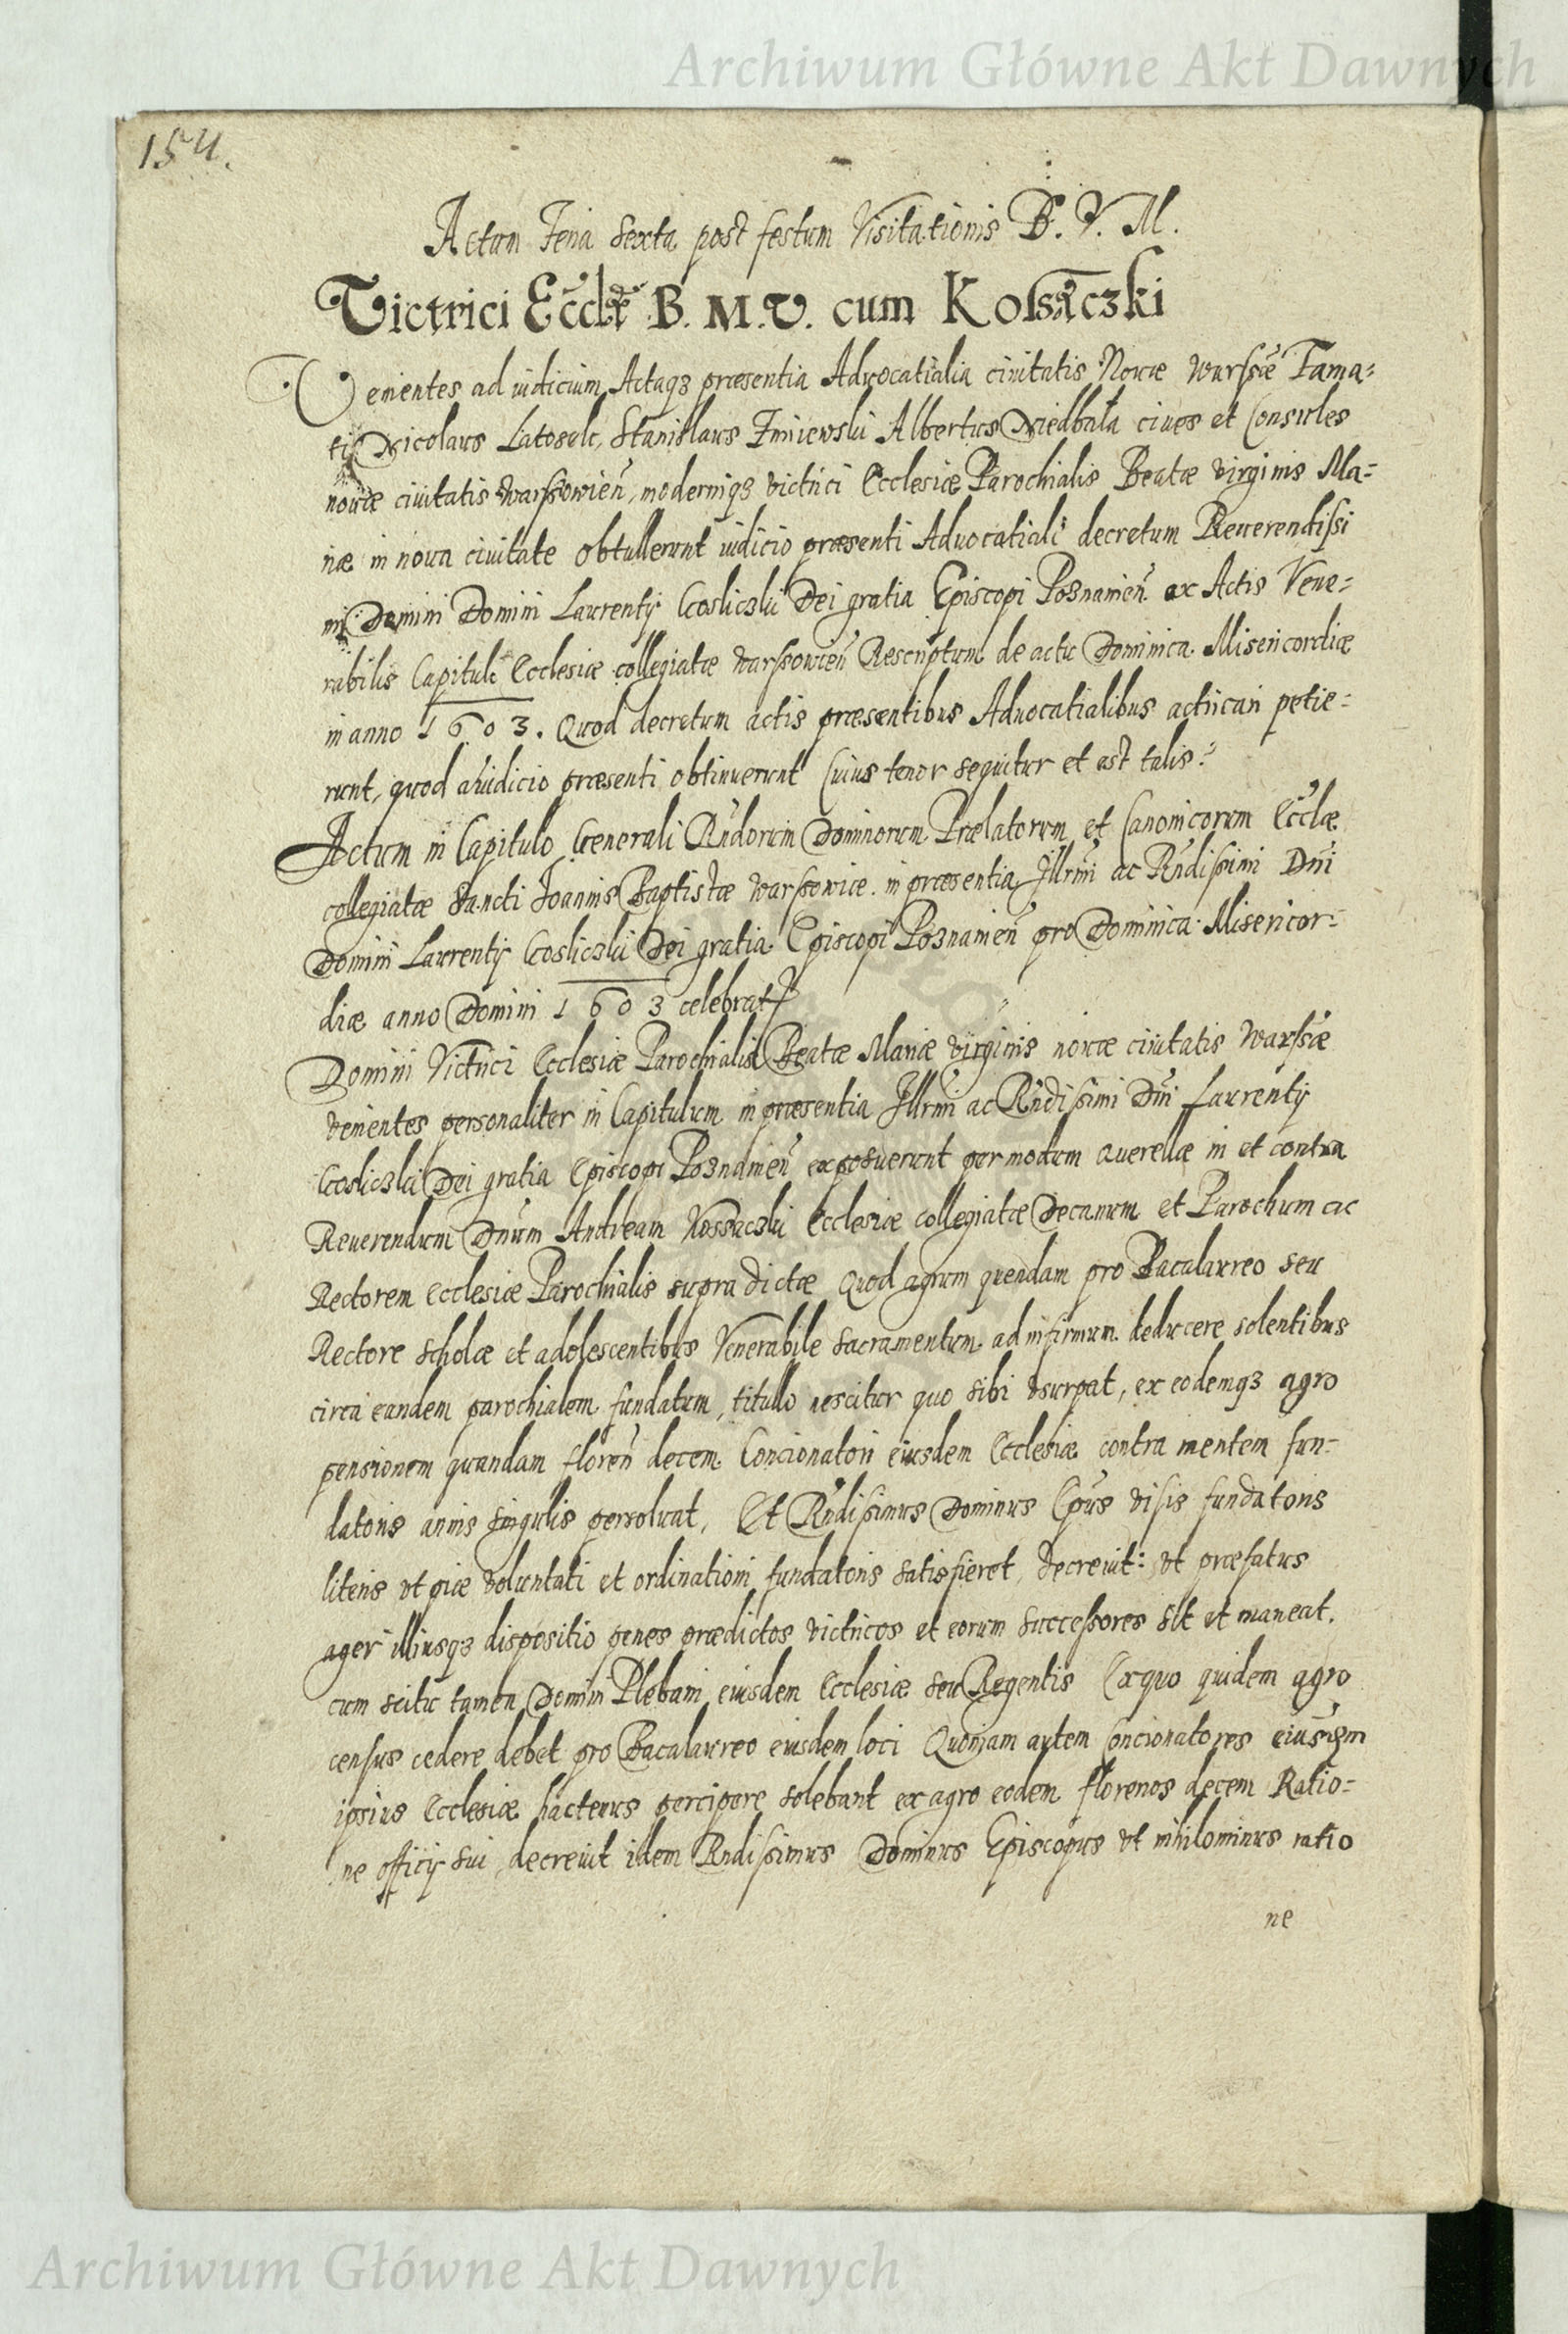 Archiwum Główne Akt Dawnych
154.
Actum Feria Sexta post festum Visitationis B. V. M.
Victrici Eccłæ B. M. V. cum Kossaczki
Venientes ad iudicium Actaqꝫ præsentia Aduocatialia ciuitatis Nouæ Warssæ Fama-
ti Nicolaus Latosek, Stanislaus Albertus Niedbała ciues et Consules
nouæ ciuitatis Warssouień, moderniqꝫ victrici Ecclesiæ Parochialis Beatæ virginis Ma-
riæ in noua ciuitate obtullerunt iudicio præsenti Aduocatiali decretum Reuerendissi
mi Domini Domini Laurentÿ Gosliczki Dei gratia Episcopi Poznamień ex Actis Vene-
rabilis Capituli Ecclesiæ collegiatæ Warssouień Rescriptum de actu Dominica Misericordiæ
in anno 1603. Quod decretum actis præsentibus Aduocatialibus acticari petie-
runt, quod a iudicio præsenti obtinuerunt Cuius tenor sequitur et est talis:
Actum in Capitulo Generali Rńdorum Dominorum Prælatorum et Canonicorum Ecclæ
collegiatæ Sancti Joannis Baptistæ Warssouiæ in præsentia Illrmi ac Rńdissimi Dńi
Domini Laurentÿ Gosliczki Dei gratia Episcopi Poznamień pro Dominica Misericor-
diæ anno Domini 1603 celebrat
Domini Victrici Ecclesiæ Parochialis Beatæ Mariæ virginis nouæ ciuitatis Warssæ
venientes personaliter in Capitulum in præsentia Illrmi ac Rńdissimi Dńi Laurentÿ
Gosliczki Dei gratia Episcopi Poznamień exposuerunt per modum querellæ in et contra
Reuerendum Dńum Andream Kossaczki Ecclesiæ collegiatæ Decanum et Parochum ac
Rectorem Ecclesiæ Parochialis supra dictæ Quod agrum quendam pro Bacalaureo seu
Rectore Scholæ et adolescentibus Venerabile Sacramentum ad infirmum deducere solentibus
circa eandem parochialem fundatum, titullo nescitur quo sibi vsurpat, ex eodemqꝫ agro
pensionem quandam floreń decem Concionatori eiusdem Ecclesiæ contra mentem fun-
datoris annis singulis persoluat, Et Rńdissimus Dominus Epũs visis fundatoris
literis vt piæ voluntati et ordinationi fundatoris satisfieret, decreuit: vt præfatus
ager illiusqꝫ dispositio penes prædictos victricos et eorum successores sit et maneat.
cum scitu tamen Domini Plebani eiusdem Ecclesiæ seu Regentis Ex quo quidem agro
census cedere debet pro Bacalaureo eiusdem loci Quoniam autem Concionatores eiusdem
ipsius Ecclesiæ hactenus percipere solebant ex agro eodem florenos decem Ratio-
ne officÿ sui, decreuit idem Rńdissimus Dominus Episcopus vt nihilominus ratio
ne
Archiwum Główne Akt Dawnych